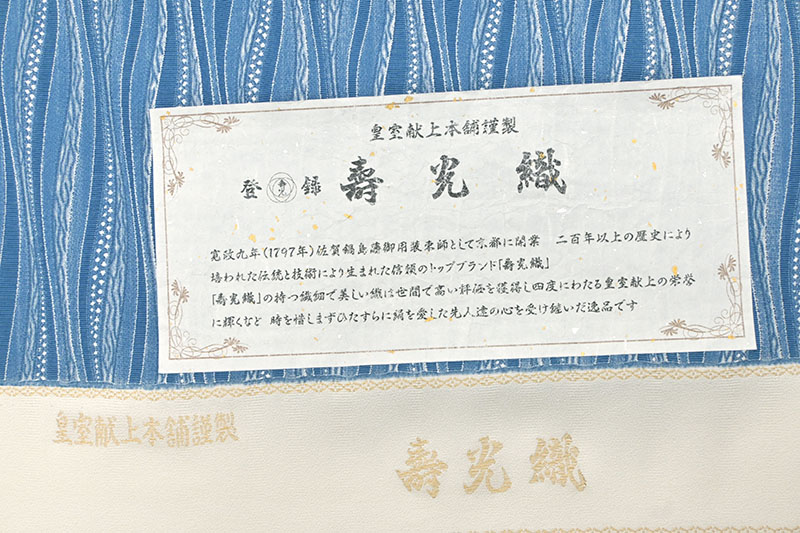 皇室献上本舗謹製
登 壽光 録 壽光織
寛政九年(1797年)佐賀鍋島藩御用装束師として京都に開業 二百年以上の歴史により
培われた伝統と技術により生まれた信頼のトップブランド「壽光織」
「壽光織」の持つ繊細で美しい織は世間で高い評価を獲得し四度にわたる皇室献上の栄誉
に輝くなど 時を惜しまずひたすらに絹を愛した先人達の心を受け継いだ逸品です
皇室献上本舗謹製
壽光織